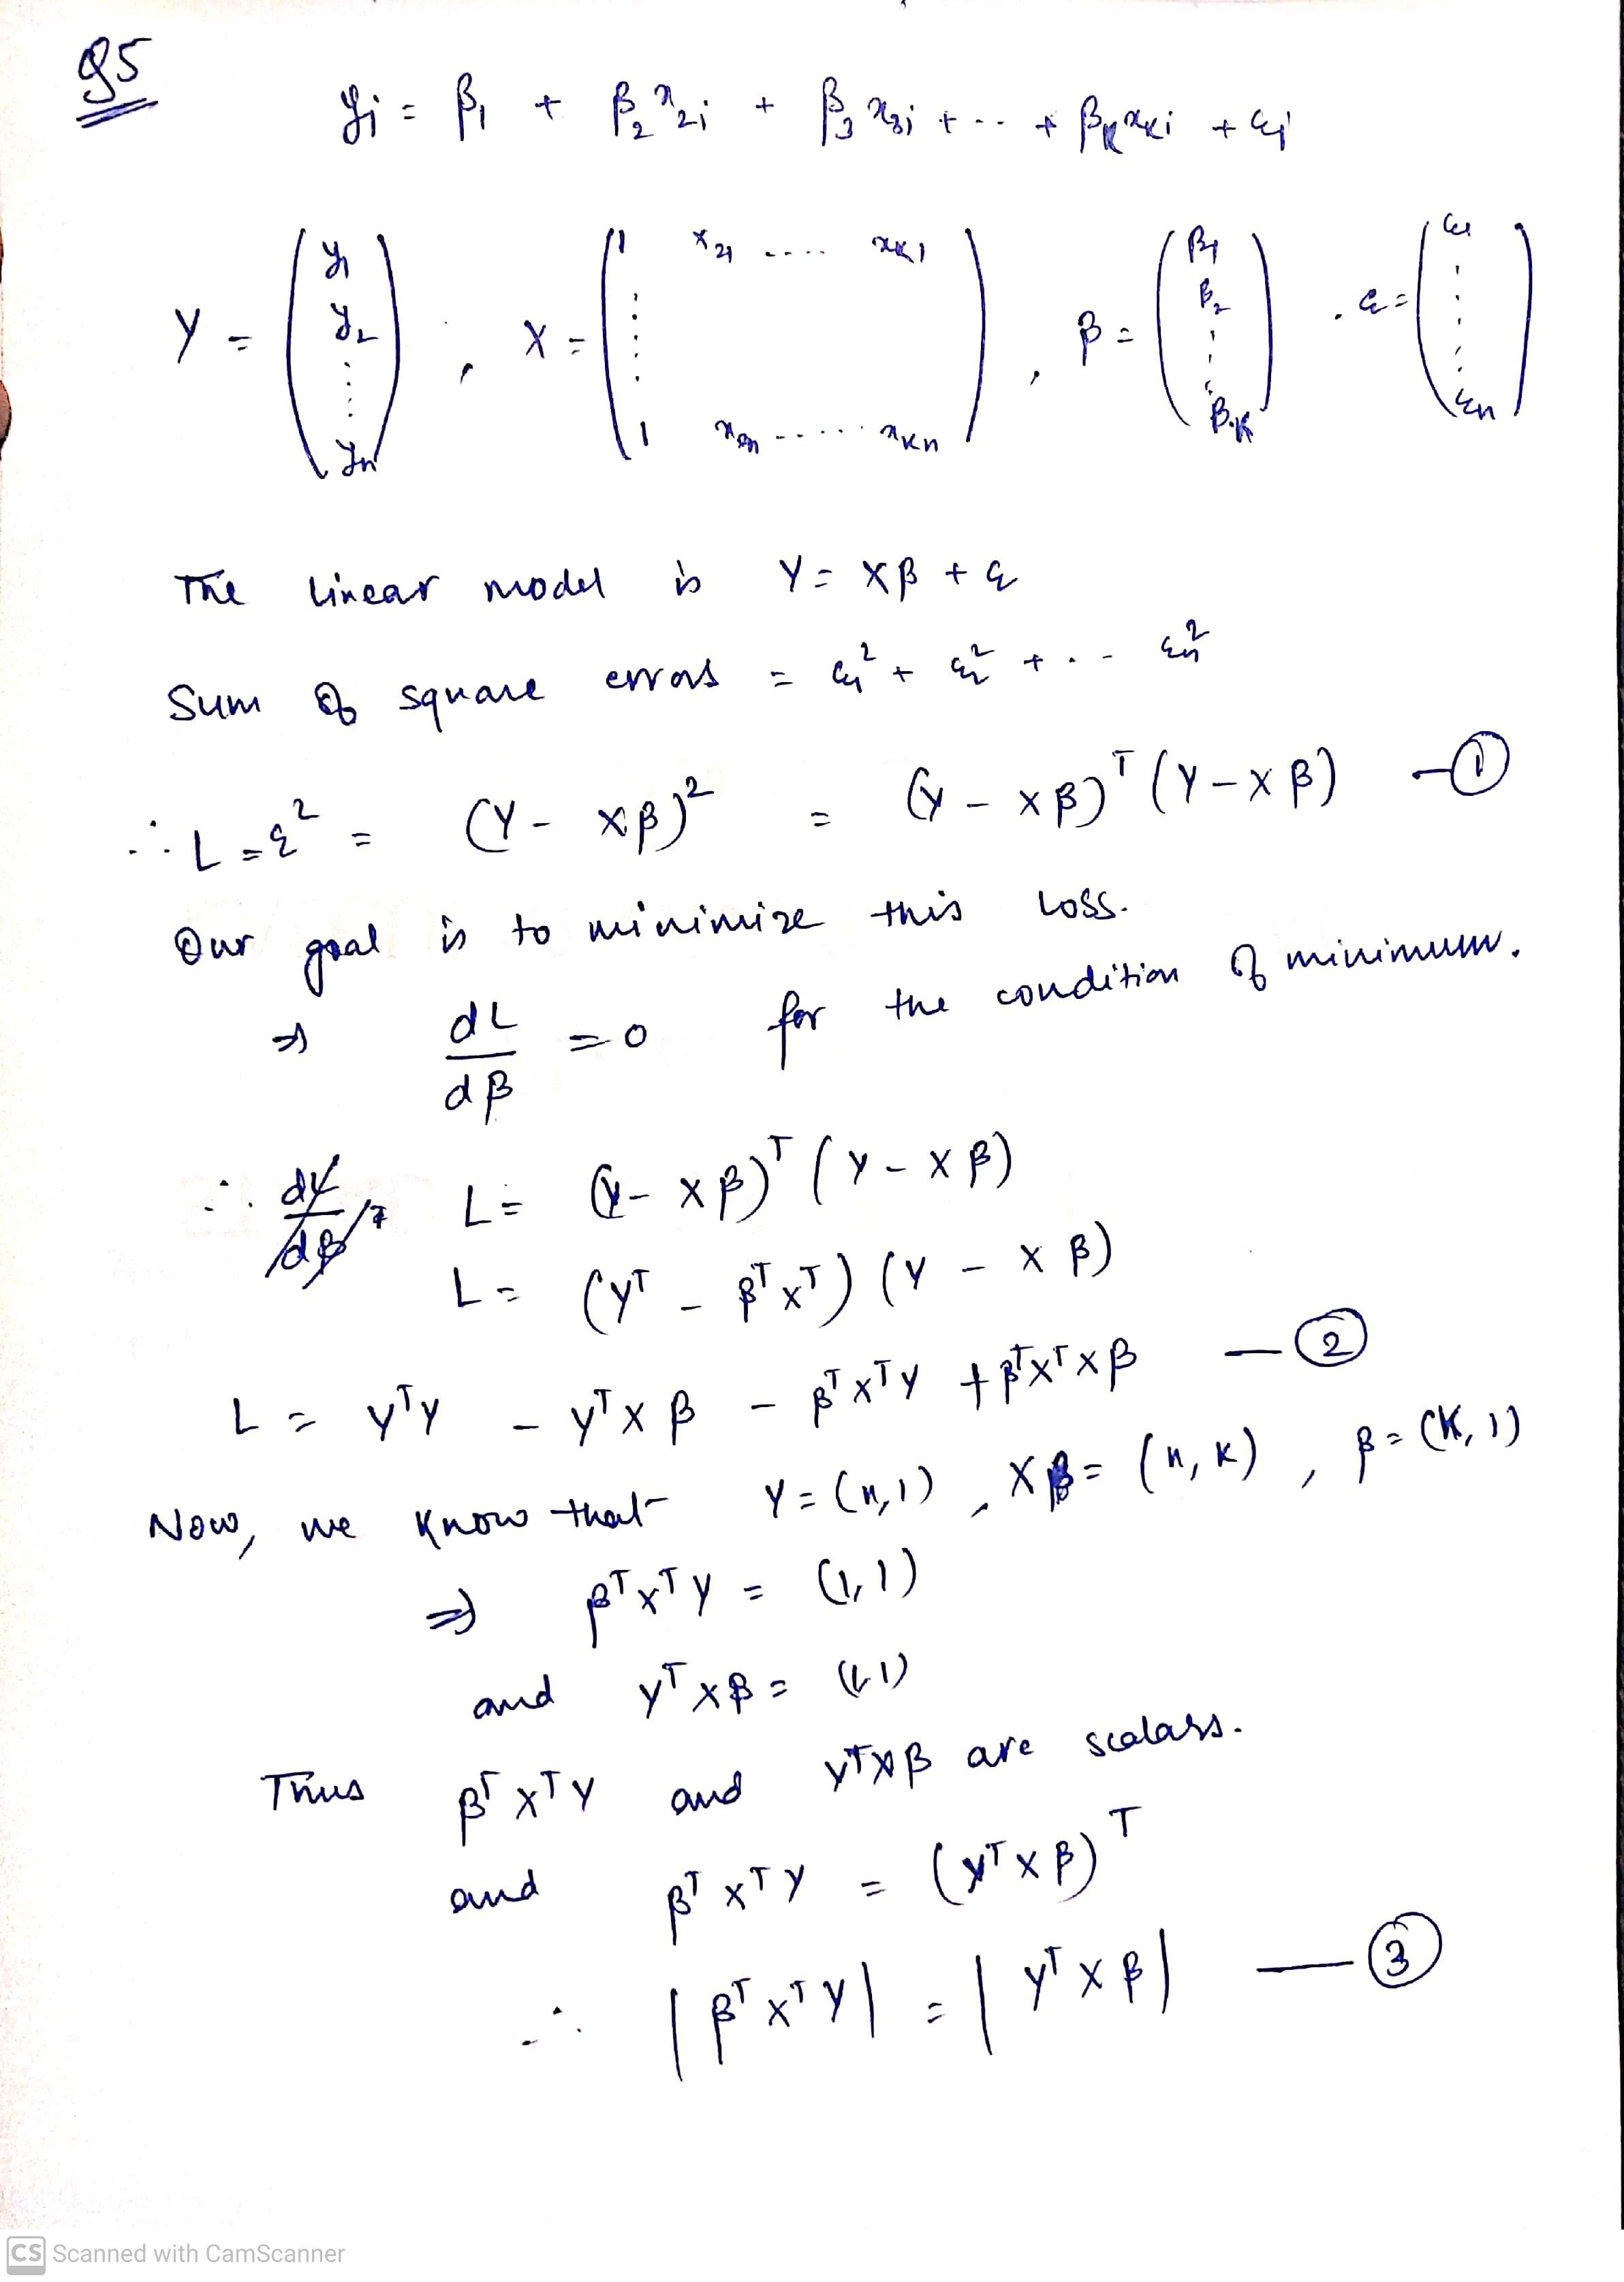 Q5
yi = β1 + β2 x2i + β3 x3i + .. + βK xKi + εi
Y = (y1 y2 ..... yn), X = (1 x21 .... xK1 ..... 1 x2n ...... xKn), β = (β1 β2 ... βK), ε = (ε1 .... εn)
The linear model is Y = Xβ + ε
Sum of square errors = ε1² + ε2² + .. - εn²
∴ L = ε² = (Y - Xβ)² = (Y - Xβ)ᵀ (Y - Xβ) —①
Our goal is to minimize this loss.
⇒ dL/dβ = 0 for the condition of minimum.
∴ L = (Y - Xβ)ᵀ (Y - Xβ)
L = (Yᵀ - βᵀXᵀ) (Y - Xβ)
L = YᵀY - YᵀXβ - βᵀXᵀY + βᵀXᵀXβ —②
Now, we know that Y = (n,1), X = (n, K), β = (K, 1)
⇒ βᵀXᵀY = (1,1)
and YᵀXβ = (1,1)
Thus βᵀXᵀY and YᵀXβ are scalars.
and βᵀXᵀY = (YᵀXβ)ᵀ
∴ |βᵀXᵀY| = |YᵀXβ| —③
CS Scanned with CamScanner